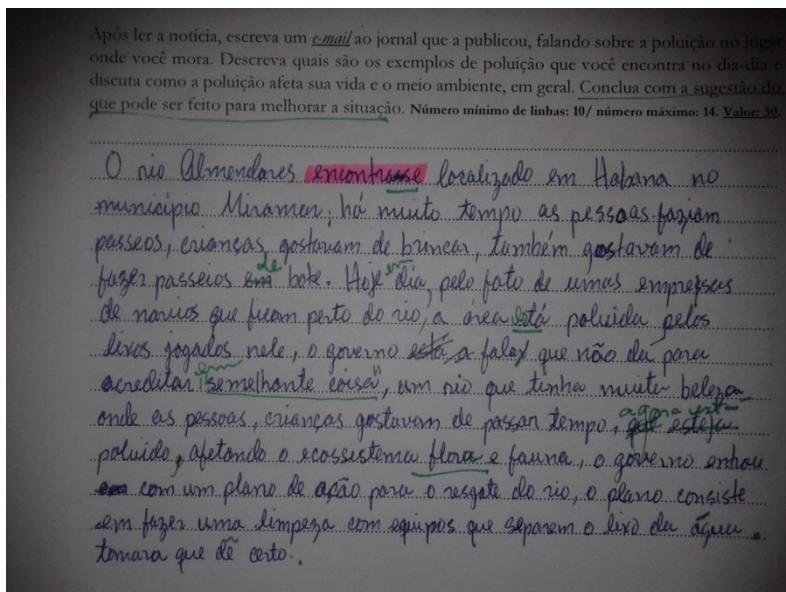 Após ler a notícia, escreva um e-mail ao jornal que a publicou, falando sobre a poluição no lugar
onde você mora. Descreva quais são os exemplos de poluição que você encontra no dia-dia e
discuta como a poluição afeta sua vida e o meio ambiente, em geral. Conclua com a sugestão do
que pode ser feito para melhorar a situação. Número mínimo de linhas: 10/ número máximo: 14. Valor: 30.
O rio Almendares encontrasse localizado em Habana no
município Miramar, há muito tempo as pessoas faziam
passeos, crianças gostavam de brincar, também gostavam de
fazer passeios em de bote. Hoje em dia, pelo fato de umas empresas
de navios que ficam perto do rio, a área está poluida pelos
lixos jogados nele, o governo está a falar que não da para
acreditar em "semelhante coisa", um rio que tinha muita beleza
onde as pessoas, crianças gostavam de passar tempo, agora está que esteja
poluido, afetando o ecossistema flora e fauna, o governo entrou
em com um plano de ação para o resgate do rio, o plano consiste
em fazer uma limpeza com equipos que separem o lixo da água.
tomara que dê certo.